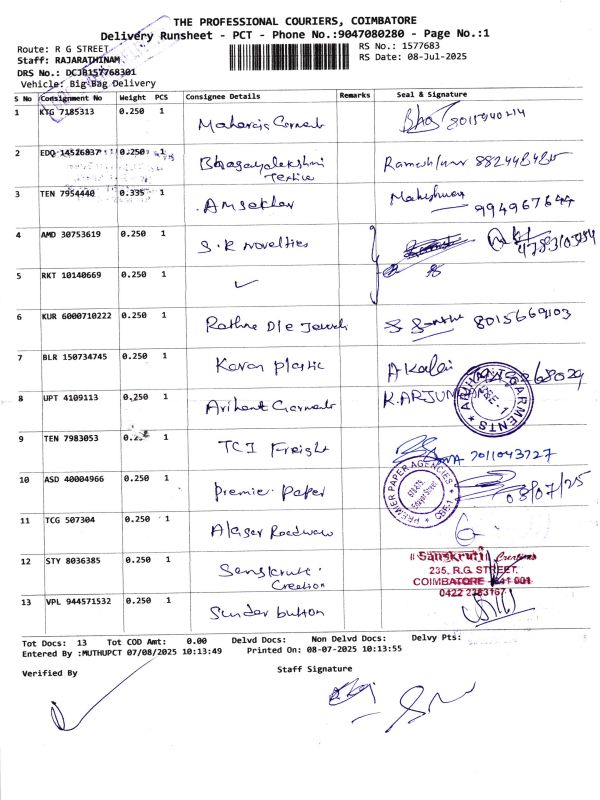 THE PROFESSIONAL COURIERS, COIMBATORE
Delivery Runsheet - PCT - Phone No.:9047080280 - Page No.:1
Route: R G STREET
RS No.: 1577683
Staff: RAJARATHINAM
RS Date: 08-Jul-2025
DRS No.: DCJB157768301
Vehicle: Big Bag Delivery
S No Consignment No Weight PCS Consignee Details Remarks Seal & Signature
1 KTG 7185313 0.250 1 8015940214
2 EDQ 14526837 0.250 1 Bhagayalakshmi Textile
3 TEN 7954440 0.335 1 Maheshwari 994967644
4 AMD 30753619 0.250 1 S.R Novelties
5 RKT 10140669 0.250 1
6 KUR 6000710222 0.250 1 8015669103
7 BLR 150734745 0.250 1 Karan plastic A Kalai
8 UPT 4109113 0.250 1 Arihant Garments K.ARJUN
ARIHANT GARMENTS CBE-1
9 TEN 7983053 1 TCI Freight 7011043727
10 ASD 40004966 0.250 1 Premier Paper 08/07/25
PREMIER PAPER AGENCIES CBE-1
11 TCG 507304 0.250 1
12 STY 8036385 0.250 1 Sanskruti Creation
Sanskruti Creations
235, R.G. STREET,
COIMBATORE - 641 001
0422 2383167
13 VPL 944571532 0.250 1 Sunder button
Tot Docs: 13 Tot COD Amt: 0.00 Delvd Docs: Non Delvd Docs: Delvy Pts:
Entered By :MUTHUPCT 07/08/2025 10:13:49 Printed On: 08-07-2025 10:13:55
Verified By
Staff Signature